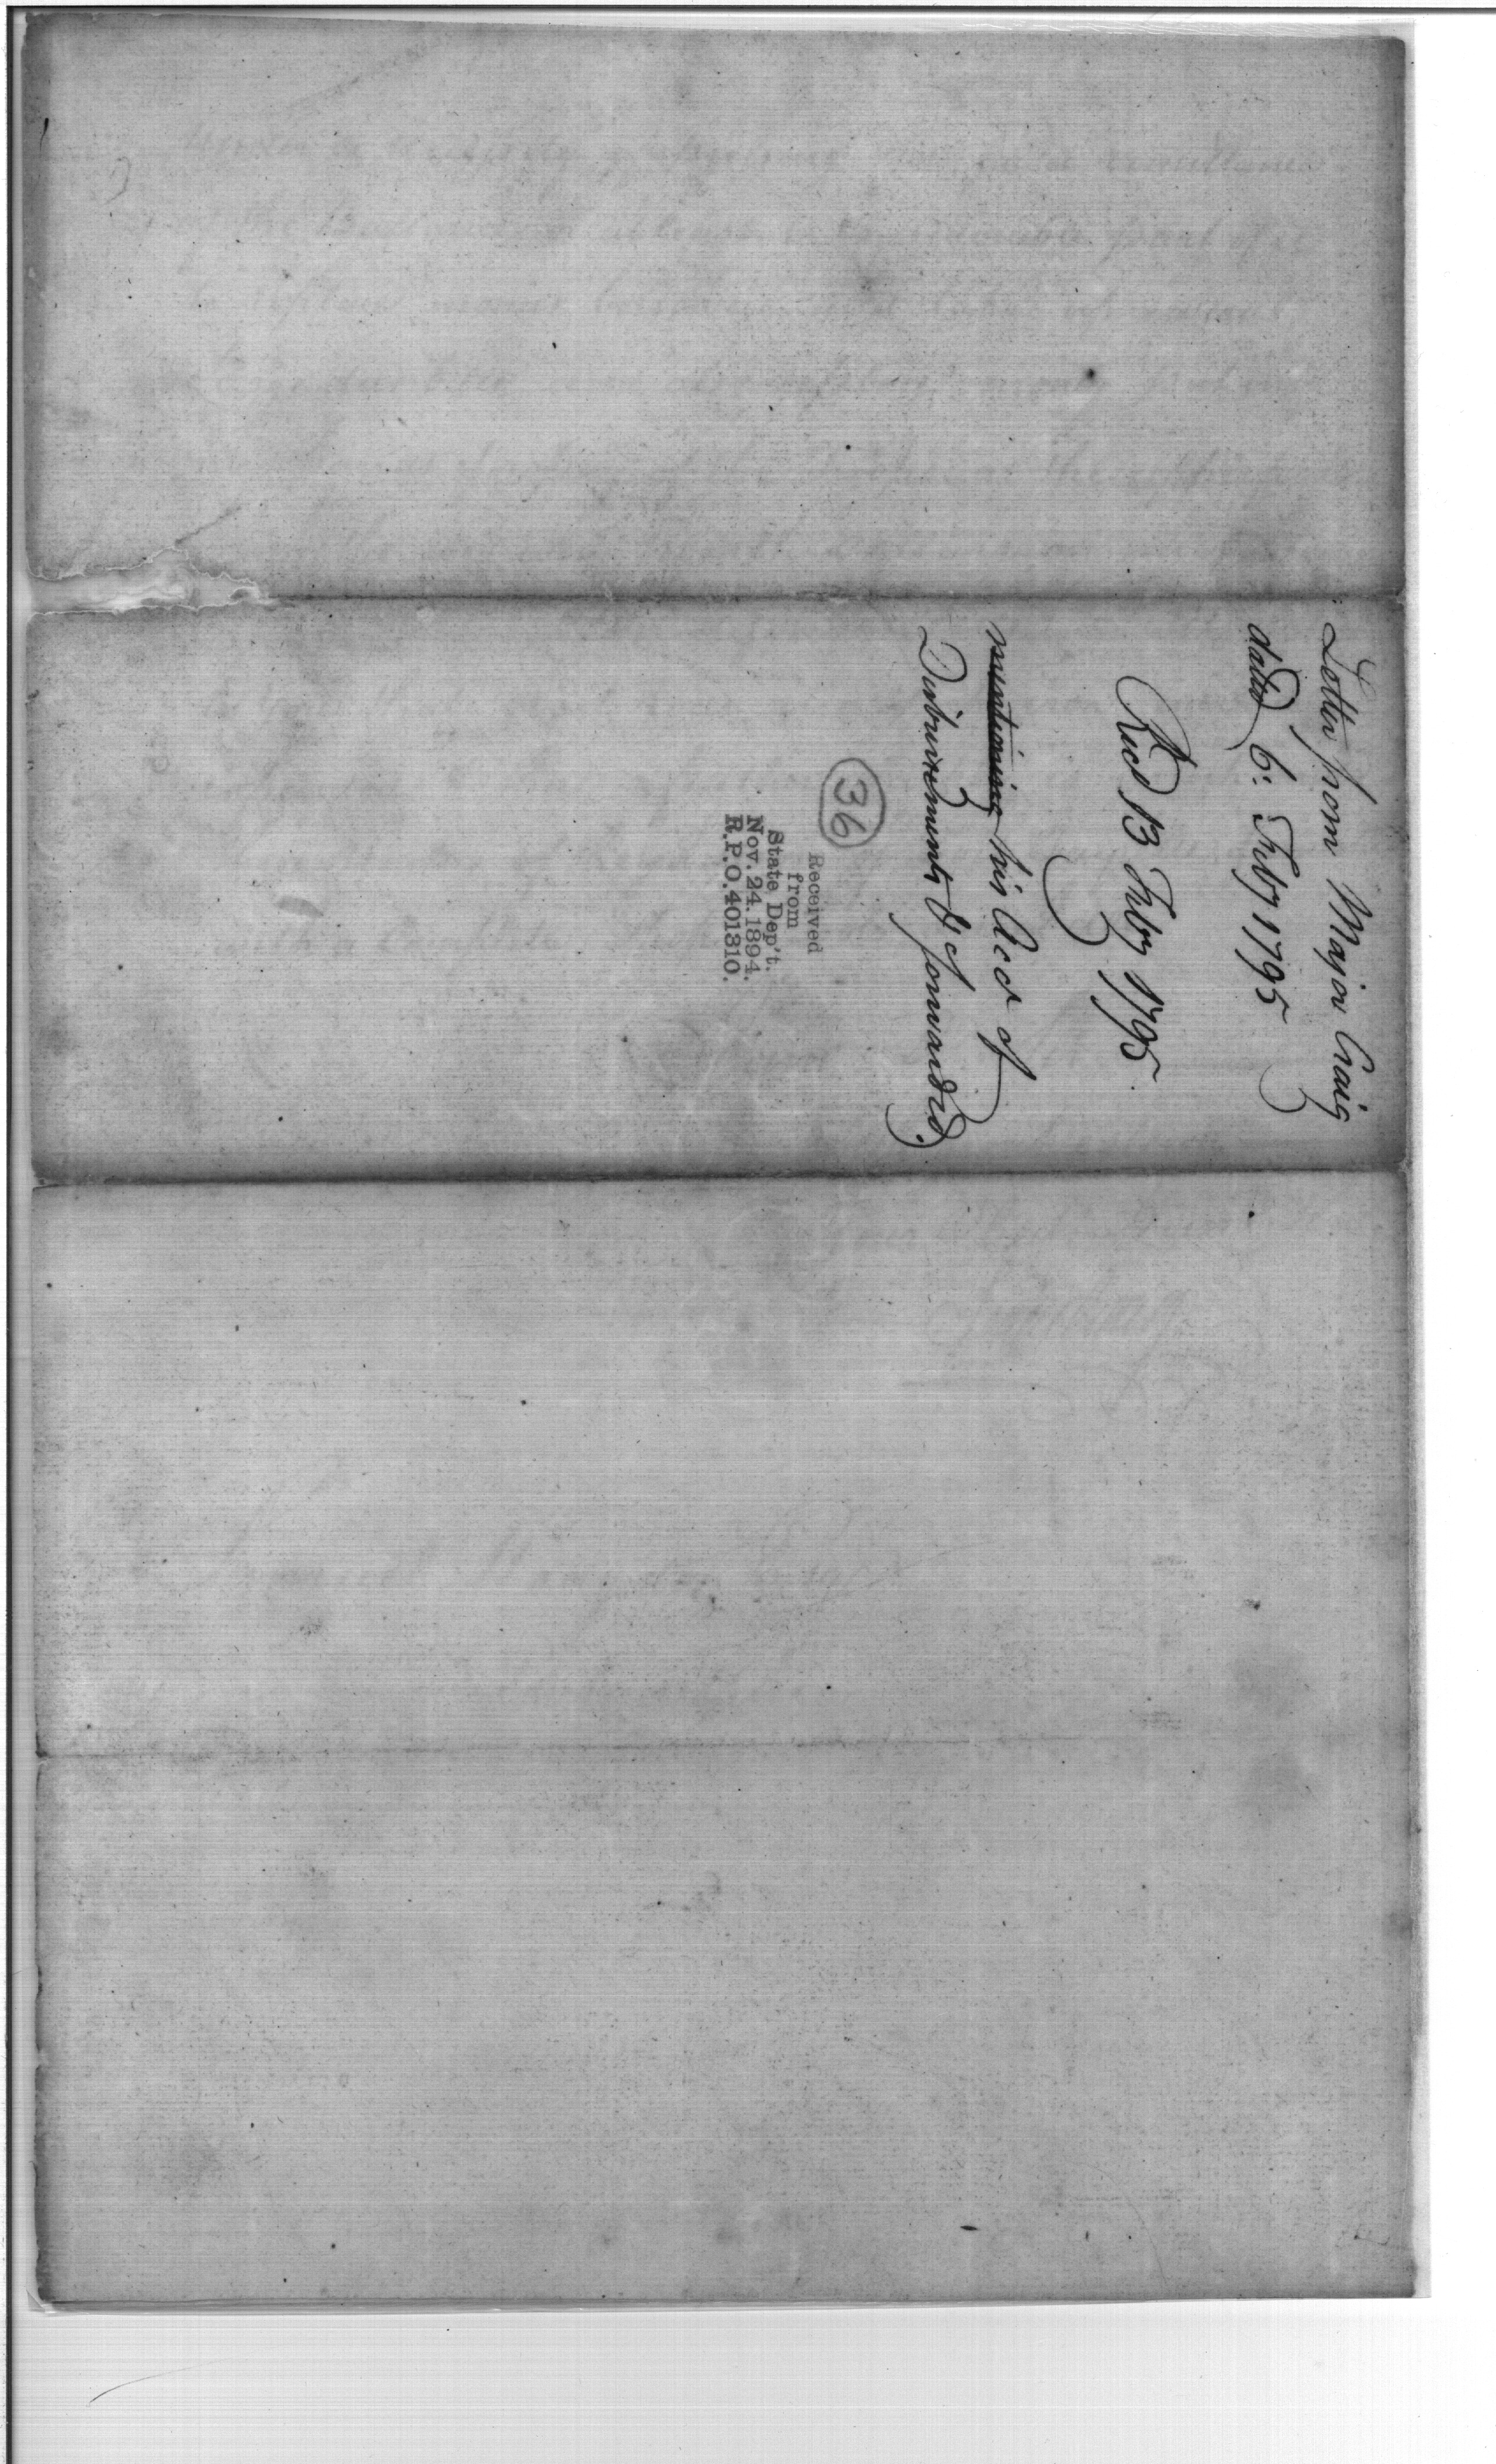 Letter from Major Craig
dated 6: Feby 1795
Recd 13 Feby 1795
mentioning his Acct of
Disbursements &c forwarded.
36
Received
from
State Dep't.
Nov. 24. 1894.
R.P.O. 401310.